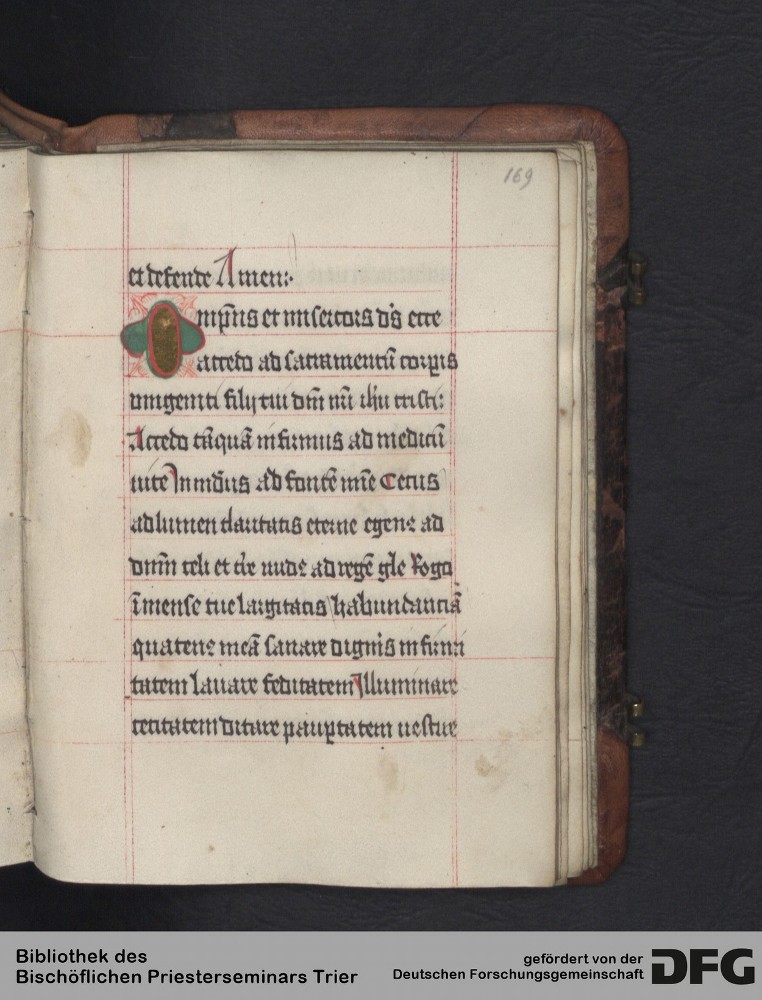 169
et defende Amen:·
Omp̅ns et misericors d̅s ecce
accedo ad sacramentu̅ corp̅is
unigeniti filij tui dn̅i nr̅i ih̅u cristi:
Accedo ta̅qua̅ infirmus ad medicu̅
uite Inmu̅dus ad fonte̅ mi̅e Cecus
ad lumen claritatis eterne egenꝰ ad
dn̅m celi et t̅re nudꝰ ad rege̅ gl̅e Rogo
i̅mense tue largitatis habundancia̅
quatenꝰ mea̅ sanare digne̅is infirmi
tatem lauare feditatem Illuminare
cecitatem ditare paup̲tatem uestire
Bibliothek des
Bischöflichen Priesterseminars Trier
gefördert von der
Deutschen Forschungsgemeinschaft
DFG